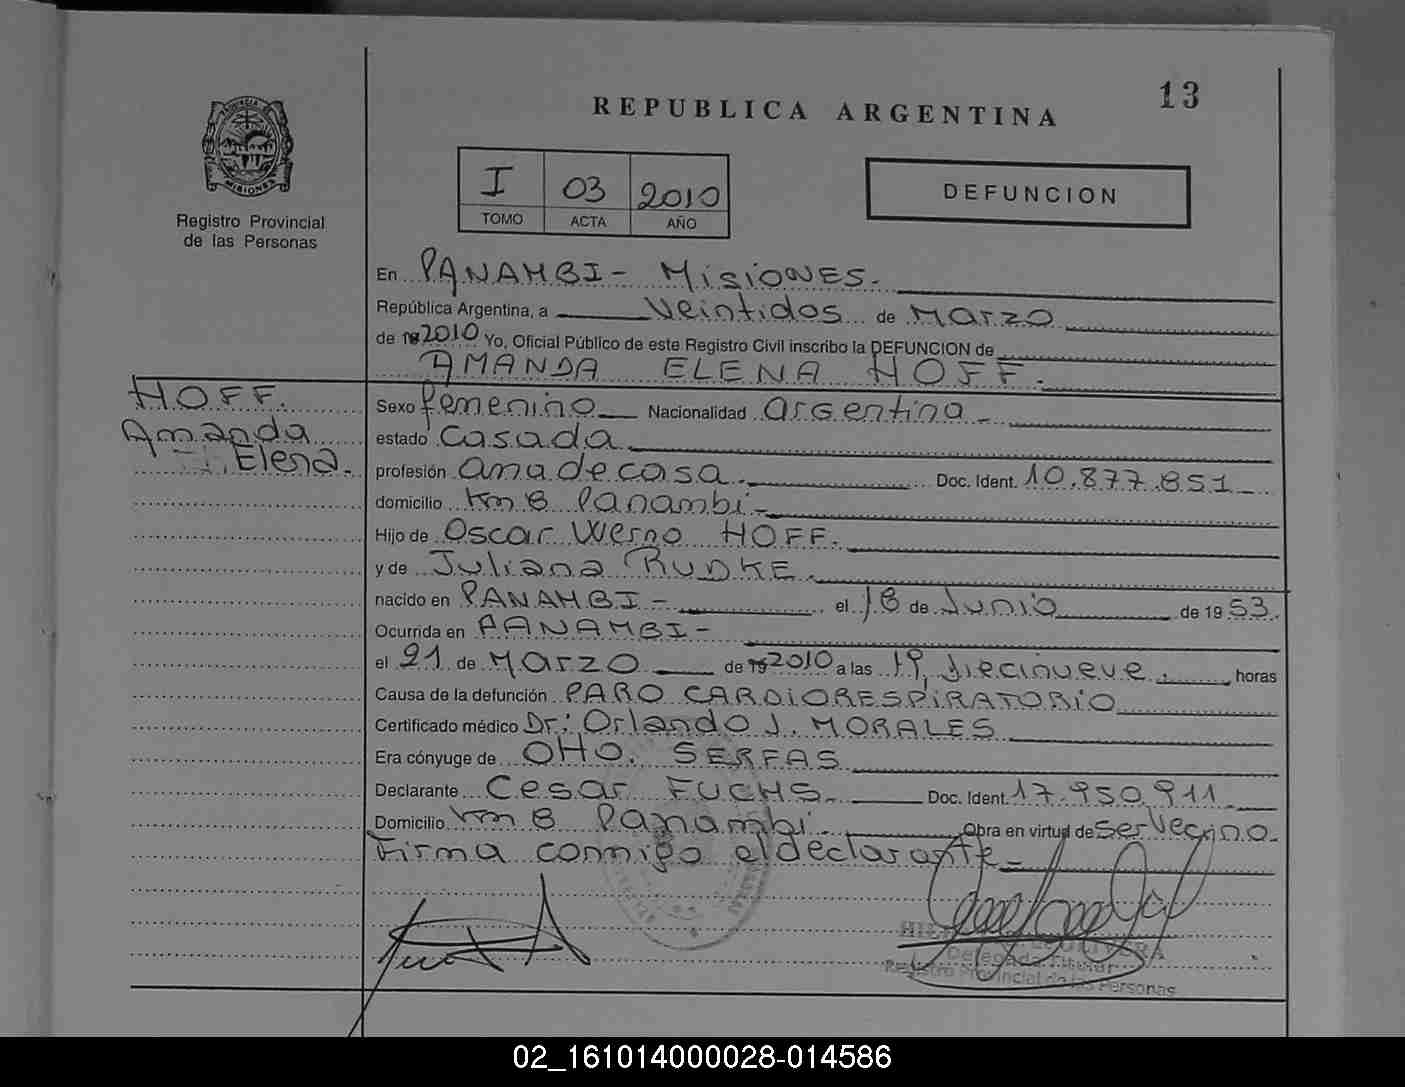 13
REPUBLICA ARGENTINA
PROVINCIA DE
MISIONES
Registro Provincial
de las Personas
I 03 2010
TOMO ACTA AÑO
DEFUNCION
En PANAMBI - MISIONES.
República Argentina, a Veintidos de Marzo
de 19 2010 Yo, Oficial Público de este Registro Civil inscribo la DEFUNCION de
AMANDA ELENA HOFF.
HOFF.
Amanda
Elena.
Sexo femenino Nacionalidad argentina -
estado casada
profesión ama de casa. Doc. Ident. 10.877.851
domicilio Km 8 Panambi -
Hijo de Oscar Werno HOFF.
y de Juliana RUDKE.
nacido en PANAMBI - el 18 de Junio de 1953.
Ocurrida en PANAMBI -
el 21 de Marzo de 19 2010 a las 19, diecinueve. horas
Causa de la defunción PARO CARDIORESPIRATORIO
Certificado médico Dr: Orlando J. MORALES
Era cónyuge de OTTO. SERFAS
Declarante Cesar FUCHS. Doc. Ident. 17.950.911
Domicilio Km 8 Panambi. Obra en virtud de ser Vecino.
Firma conmigo el declarante -
Delegada Titular
Registro Provincial de las Personas
02_161014000028-014586